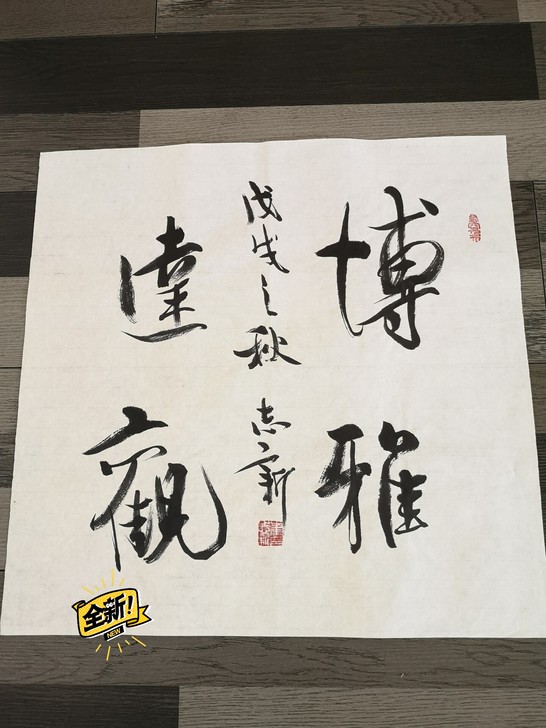 博雅
達觀
戊戌之秋
志新
全新!
NEW